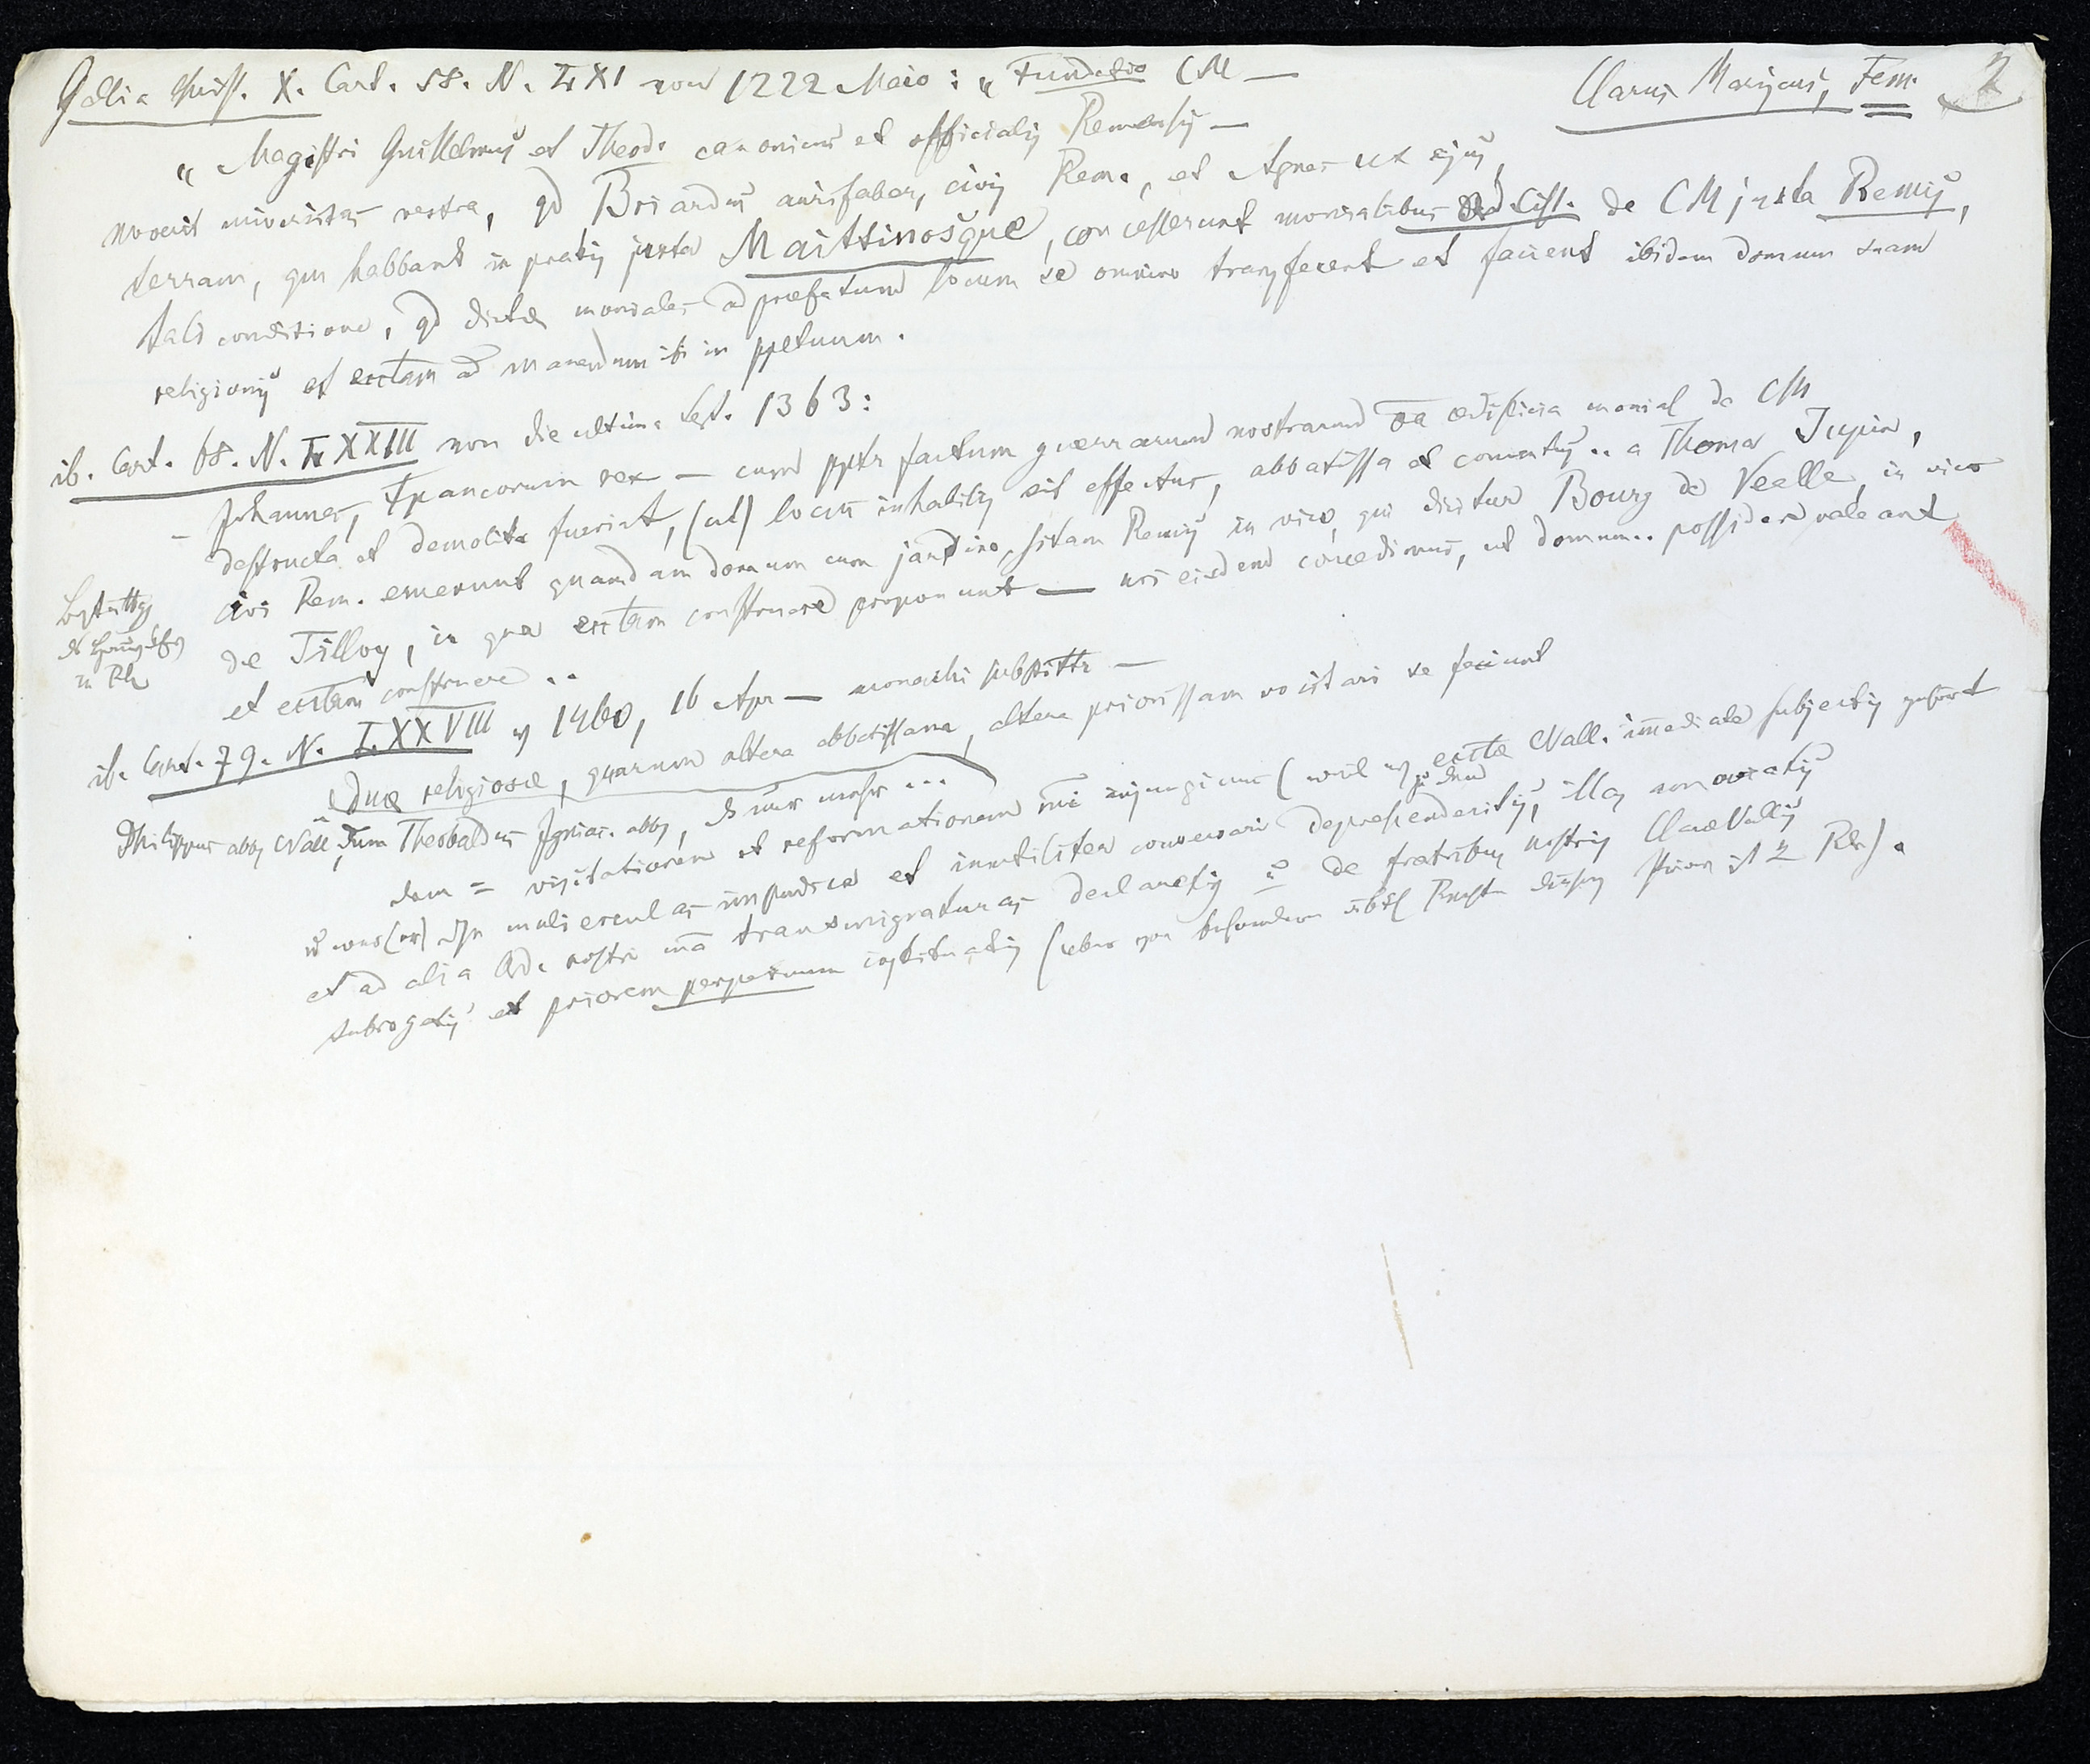 Clarus Mariscus, Fem. 2
Gallia christ. X. Cart. 58. N. LXI von 1222 Maio: „Fundatio CM —
„Magistri Guillelmus et Theod. canonicus et officialis Remensis —
noverit universitas vestra, qd Briardus aurifaber, civis Rem., et Agnes ux ejus,
terram, qm habbant in pratis juxta Maittinosque, concesserunt monialibus Ord. Cist. de CM juxta Remis,
tali conditione, qd dictæ moniales ad præfatum locum se omnino transferent et facient ibidem domum suam
religionis et ecctam ad manendum ibi in ppetuum.
ib. Cart. 68. N. LXXIII von die ultima Sept. 1363:
— Johannes, Francorum rex — cum pptr factum guerrarum nostrarum oa ædificia monial de CM
destructa et demolita fuerint, (ut) locus inhabilis sit effectus, abbatissa et conventus .. a Thoma Jupin,
cive Rem. emerunt quamdam domum cum jardino, sitam Remis in vico, qui dicitur Bourg de Veelle, in vico
de Tilloy, in qua eccltam construere proponunt — nos eisdem concedimus, ut domum .. possidere valeant
et eccltam construere ..
ib. Cart. 79. N. LXXVIII v 1460, 16 Apr — monachi substittr —
Duæ religiosæ, quarum altera abbatissam, altera priorissam vocitari se faciunt
Philippus abb Cvall, Theobaldus Igniac. abb, ds nur mehr ...
dem = visitationem et reformationem injungimus ( weil eccltæ Cvall. immediate subjectis gehört
mulierculas impudice et inutiliter conversari deprehenderitis, illas amoveatis
et ad alia Ord. nostri transmigraturas declaretis de fratribus nostris ClaræVallis
subrogetis et priorem perpetuum instituatis